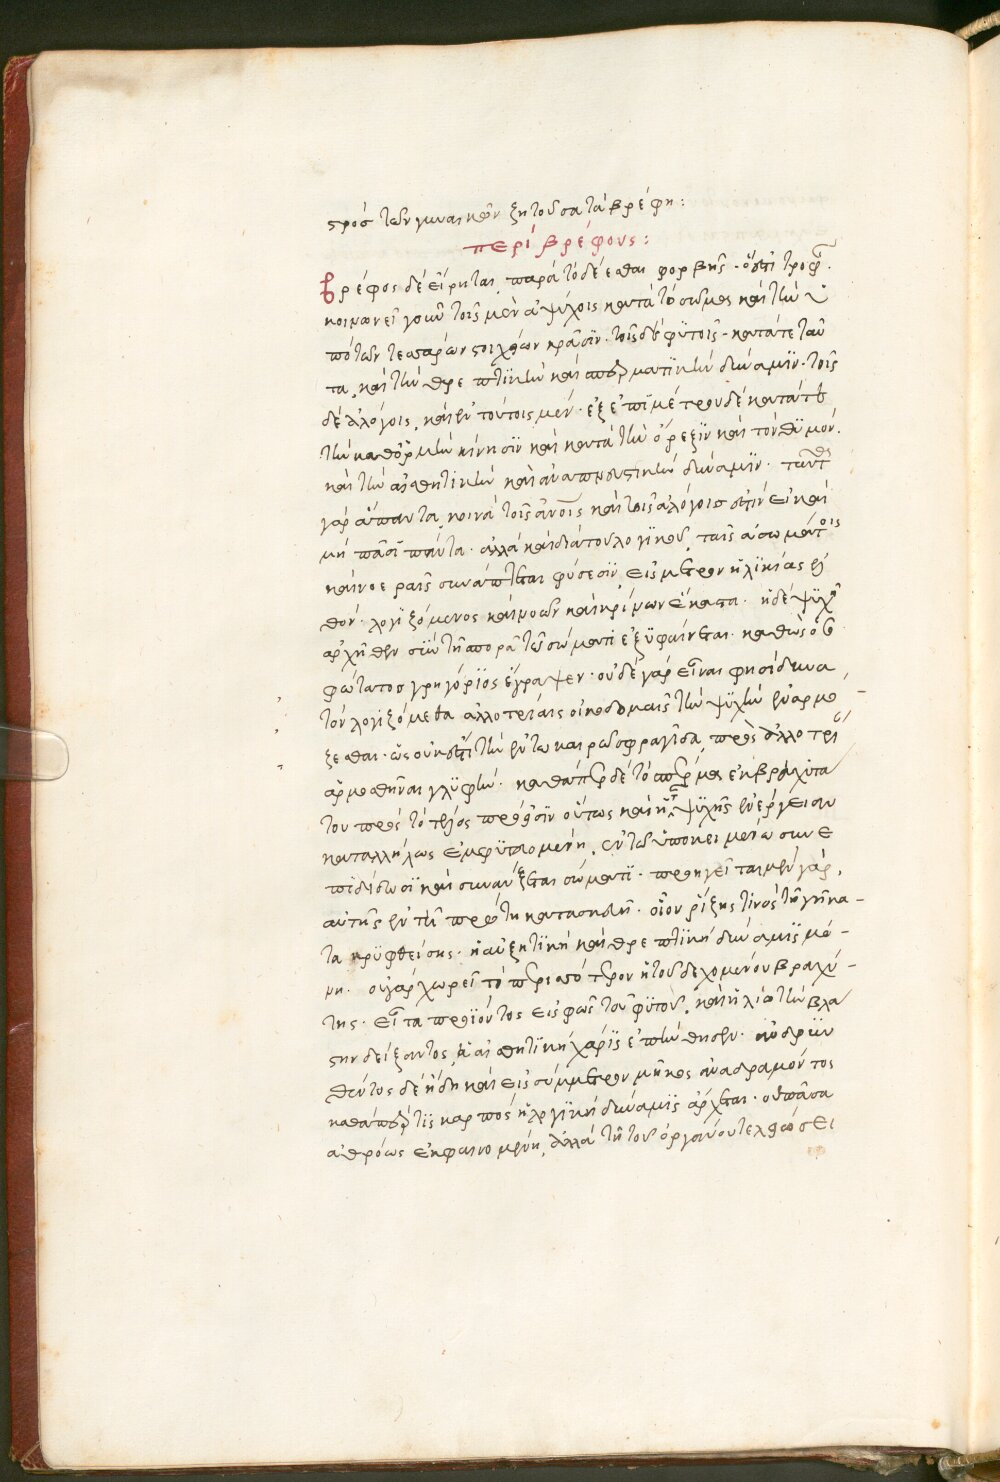 πρόσ τῶν γυναικῶν ζητοῦσα τὰ βρέφη:
περὶ βρέφους:
βρέφος δὲ εἴρηται, παρὰ τὸ δέεσθαι φορβῆς· ὅ ἐστι τροφῆς.
κοινωνεῖ γοῦν τοῖς μὲν ἀψύχοις κατὰ τὸ σῶμα καὶ τὴν ἀ
πὸ τῶν τεσσάρων στοιχείων κρᾶσϊν· τοῖς δὲ φϋτοῖς· κατά τε ταῦ
τα, καὶ τὴν θρεπτϊκὴν καὶ σπερματϊκὴν δύναμϊν· τοῖς
δὲ ἀλόγοις, καὶ ἐν τούτοις μέν· ἐξ ἐπϊμέτρου δὲ κατά τε
τὴν καθ' ὁρμὴν κίνησϊν καὶ κατὰ τὴν ὄρεξϊν καὶ τὸν θϋμόν.
καὶ τὴν αἰσθητϊκὴν καὶ ἀναπνευστϊκὴν δύναμϊν· ταῦτα
γὰρ ἅπαντα, κοινὰ τοῖς ἀνοις καὶ τοῖς ἀλόγοισ ἐστὶν εἰ καὶ
μὴ πᾶσϊ πάντα· ἀλλὰ καὶ διὰ τοῦ λογϊκοῦ, ταῖς ἀσωμάτοις
καὶ νοεραῖς συνάπτεται φύσεσϊν, εἰς μέτρον ἡλϊκίας ἐλ
θόν· λογϊζόμενος καὶ νοῶν καὶ κρίνων ἕκαστα· ἡ δὲ ψϋχὴ
ἀρχῆθεν σὺν τῇ σπορᾷ τῶ σώματϊ ἐξϋφαίνεται· καθὼς ὁ σο
φώτατοσ γρηγόρϊος ἔγραψεν· οὐδὲ γὰρ εἶναί φησϊ δυνα
τὸν λογϊζόμεθα ἀλλοτρίαις οἰκοδομαῖς τὴν ψϋχὴν ἐναρμό
ζεσθαι· ὡς οὐκ ἔστϊ τὴν ἐν τῶ κηρῶ σφραγῖδα, πρὸς ἀλλοτρίαν
ἁρμοσθῆναι γλϋφήν· καθάπερ δὲ τὸ σπέρμα ἐκ βραχϋτά
του πρὸς τὸ τέλος πρόεισϊν οὕτως καὶ ἡ τῆς ψϋχῆς ἐνέργεια συν
καταλλήλως ἐμφϋομένη, ἐν τῶ ὑποκειμένω συνε
πϊδίδωσϊ καὶ συναύξεται σώματϊ· προηγεῖται μὲν γὰρ,
αὐτῆς ἐν τῇ πρώτη κατασκευῇ· οἷον ῥίζης τϊνὸς τῇ γῇ κα-
τακρϋφθείσης· ἡ αὐξητϊκὴ καὶ θρεπτϊκὴ δύναμϊς μό-
νη· οὐ γὰρ χωρεῖ τὸ περισσότερον ἡ τοῦ δεχομένου βραχύ-
της· εἶτα προϊόντος εἰς φῶς τοῦ φϋτοῦ, καὶ ἡλίω τὴν βλά
στην δείξαντος, ἡ αἰσθητϊκὴ χάρϊς ἐπήνθησεν· ἁδρυν
θέντος δὲ ἤδη καὶ εἰς σύμμετρον μῆκος ἀναδραμόντος
καθάπέρ τϊς καρπὸς ἡ λογϊκὴ δύναμϊς ἄρχεται· οὐ πᾶσα
ἀθρόως ἐκφαινομένη, ἀλλὰ τῇ τοῦ ὀργάνου τελειώσει